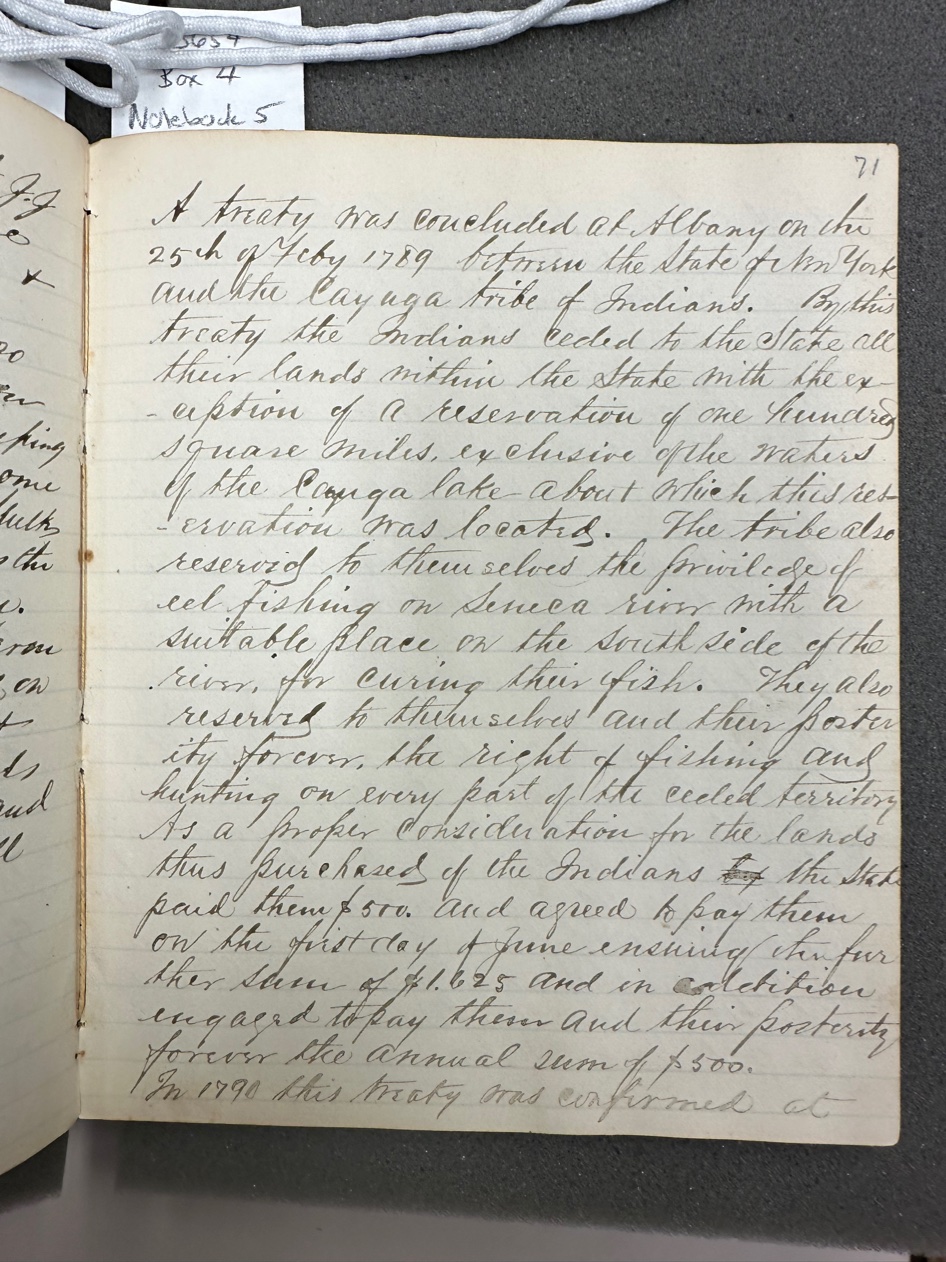 5659
Box 4
Notebook 5
71
A treaty was concluded at Albany on the
25th of Feby 1789 between the State of New York
and the Cayuga tribe of Indians. By this
treaty the Indians ceded to the State all
their lands within the State with the ex-
-ception of a reservation of one hundred
square miles, exclusive of the waters
of the Cayuga lake about which this res-
-ervation was located. The tribe also
reserved to themselves the priviledge of
eel fishing on Seneca river with a
suitable place on the south side of the
river, for curing their fish. They also
reserved to themselves and their poster
ity forever, the right of fishing and
hunting on every part of the ceded territory
As a proper consideration for the lands
thus purchased of the Indians the State
paid them $500. and agreed to pay them
on the first day of June ensuing the fur
ther sum of $1.625 and in addition
engaged to pay them and their posterity
forever the annual sum of $500.
In 1790 this treaty was confirmed at
J.J
ping
ome
the
on
and